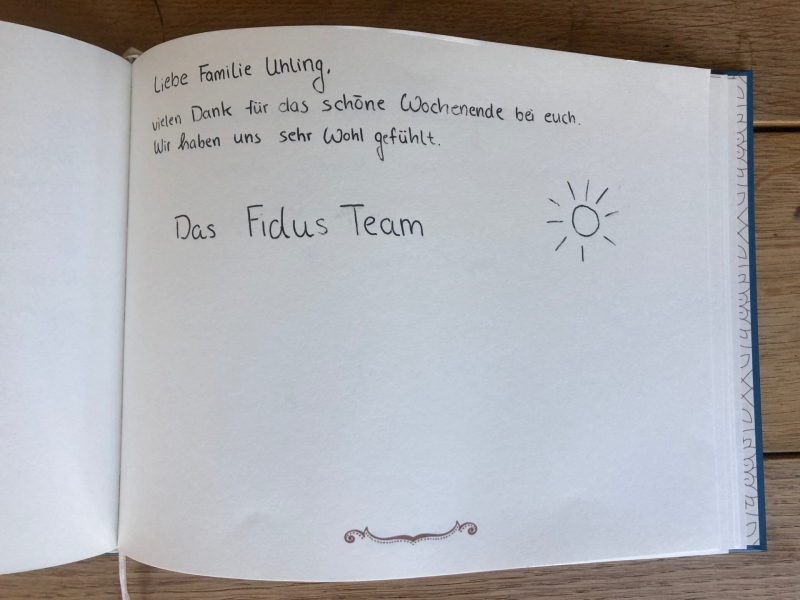 Liebe Familie Uhling,
vielen Dank für das schöne Wochenende bei euch.
Wir haben uns sehr Wohl gefühlt.
Das Fidus Team